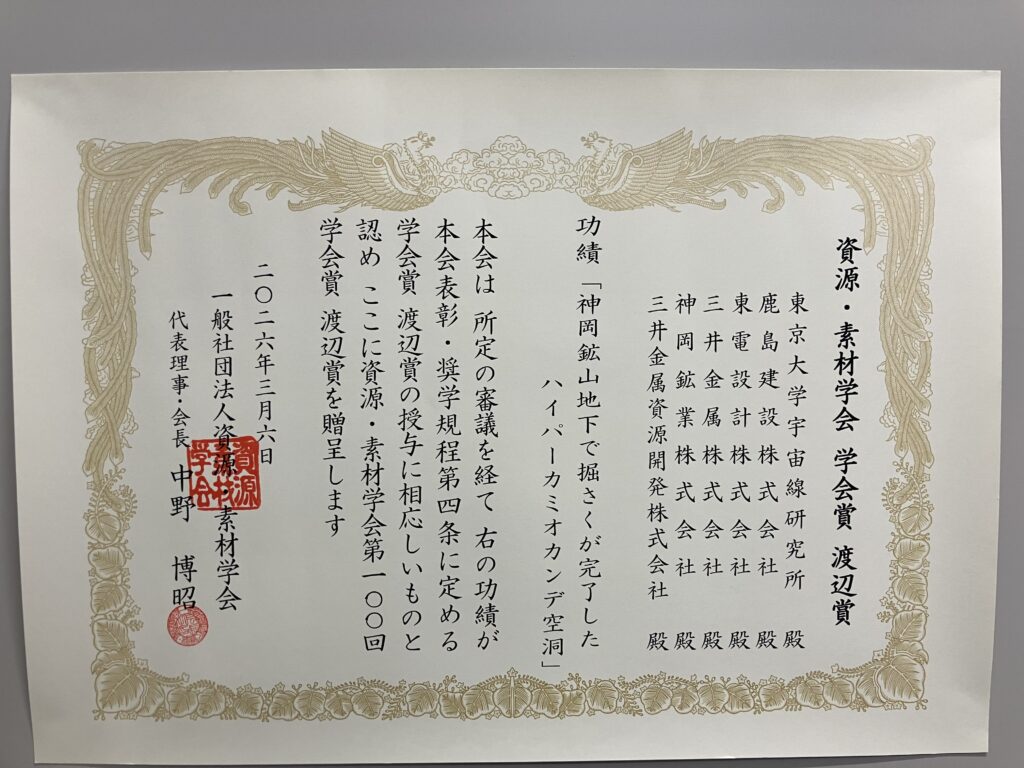 資源・素材学会 学会賞 渡辺賞
東京大学宇宙線研究所 殿
鹿島建設株式会社 殿
東電設計株式会社 殿
三井金属株式会社 殿
神岡鉱業株式会社 殿
三井金属資源開発株式会社 殿
功績「神岡鉱山地下で掘さくが完了した
ハイパーカミオカンデ空洞」
本会は 所定の審議を経て 右の功績が
本会表彰・奨学規程第四条に定める
学会賞 渡辺賞の授与に相応しいものと
認め ここに資源・素材学会第一〇〇回
学会賞 渡辺賞を贈呈します
二〇二六年三月六日
一般社団法人資源・素材学会
代表理事・会長 中野 博昭
資源
素材
学会